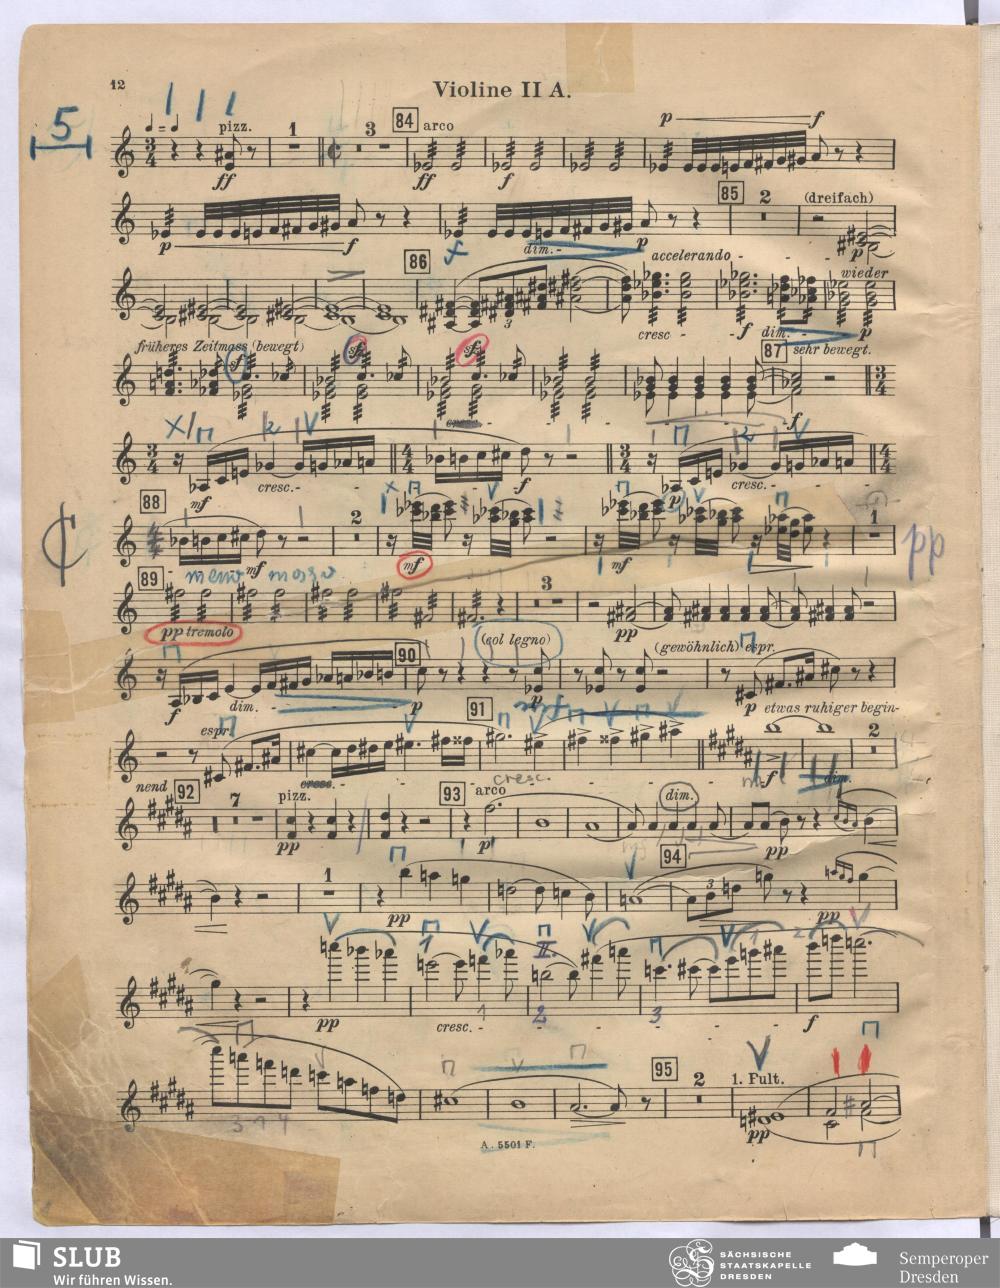 12
Violine II A.
5
pizz.
1
3
84
arco
p
f
ff
ff
f
85
2
(dreifach)
p
f
dim.
p
p
86
accelerando
wieder
3
cresc
f
dim.
p
früheres Zeitmass (bewegt)
sf
sf
sf
87
sehr bewegt.
cresc.
f
mf
cresc.
f
p
cresc.
88
2
1
mf
mf
mf
pp
meno mosso
89
3
pp tremolo
pp
(col legno)
(gewöhnlich) espr.
90
f
dim.
p
p
p etwas ruhiger begin-
espr.
91
2
cresc.
cresc.
mf
dim.
nend
92
7
pizz.
93
arco
dim.
pp
p
pp
94
1
3
pp
pp
pp
cresc.
1
2
3
f
95
2
1. Pult.
pp
A. 5501 F.
SLUB
Wir führen Wissen.
SÄCHSISCHE
STAATSKAPELLE
DRESDEN
Semperoper
Dresden